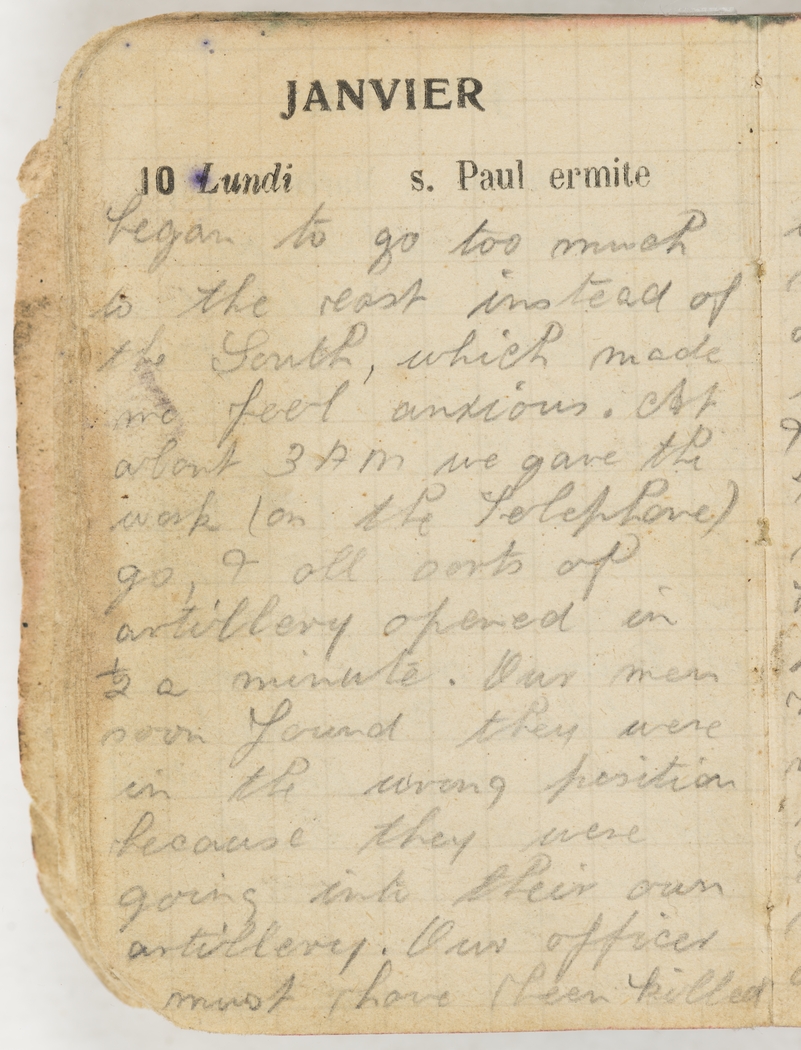 JANVIER
10 Lundi s. Paul ermite
began to go too much
to the east instead of
the South, which made
me feel anxious. At
about 3 AM we gave the
work (on the Telephone)
go, & all sorts of
artillery opened in
½ a minute. Our men
soon found they were
in the wrong position
because they were
going into their own
artillery. Our officer
must have been killed